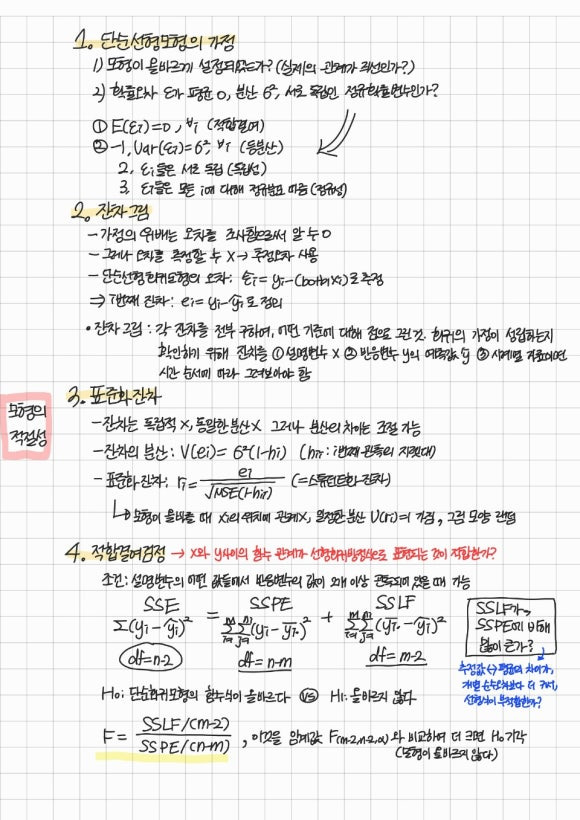 1. 단순선형모형의 가정
1) 모형이 올바르게 설정되었는가? (실제의 관계가 직선인가?)
2) 확률오차 ε가 평균 0, 분산 σ², 서로 독립인 정규확률변수인가?
① E(εi)=0, ∀i (적합결여)
②-1. Var(εi)=σ², ∀i (등분산)
2. εi들은 서로 독립 (독립성)
3. εi들은 모든 i에 대해 정규분포 따름 (정규성)
2. 잔차그림
- 가정의 위배는 오차를 조사함으로써 알 수 O
- 그러나 오차를 측정할 수 X → 추정오차 사용
- 단순선형회귀모형의 오차: ε̂i = yi-(b0+b1xi)로 추정
⇒ i번째 잔차: ei = yi-ŷi로 정의
• 잔차그림 : 각 잔차를 전부 구하여, 어떤 기준에 대해 점으로 그린 것. 회귀의 가정이 성립하는지
확인하기 위해 잔차를 ① 설명변수 x ② 반응변수 y의 예측값 ŷ ③ 시계열 자료이면
시간 순서에 따라 그려보아야 함
모형의
적절성
3. 표준화잔차
- 잔차는 독립적 X, 동일한 분산 X 그러나 분산의 차이는 조절 가능
- 잔차의 분산: V(ei) = σ²(1-hii) (hii : i번째 관측의 지렛대)
- 표준화잔차: ri = ei / √MSE(1-hii) (=스튜던트화 잔차)
↳ 모형이 올바를 때 xi의 위치에 관계X, 일정한 분산 V(ri)=1 가짐, 그림 모양 랜덤
4. 적합결여검정 → x와 y사이의 함수 관계가 선형회귀방정식으로 표현되는 것이 적합한가?
조건: 설명변수의 어떤 값들에서 반응변수의 값이 2개 이상 관측되어 있을 때 가능
SSE = SSPE + SSLF
Σ(yi-ŷi)² ΣΣ(yij-ȳi.)² ΣΣ(ȳi.-ŷi)²
df=n-2 df=n-m df=m-2
SSLF가
SSPE에 비해
많이 큰가?
추정값↔평균의 차이가,
개별 순수오차보다 더 커서,
선형식이 부적합한가?
H0: 단순회귀모형의 함수식이 올바르다 VS H1: 올바르지 않다
F = SSLF/(m-2) / SSPE/(n-m) , 이것을 임계값 F(m-2,n-2,α)와 비교하여 더 크면 H0기각
(모형이 올바르지 않다)